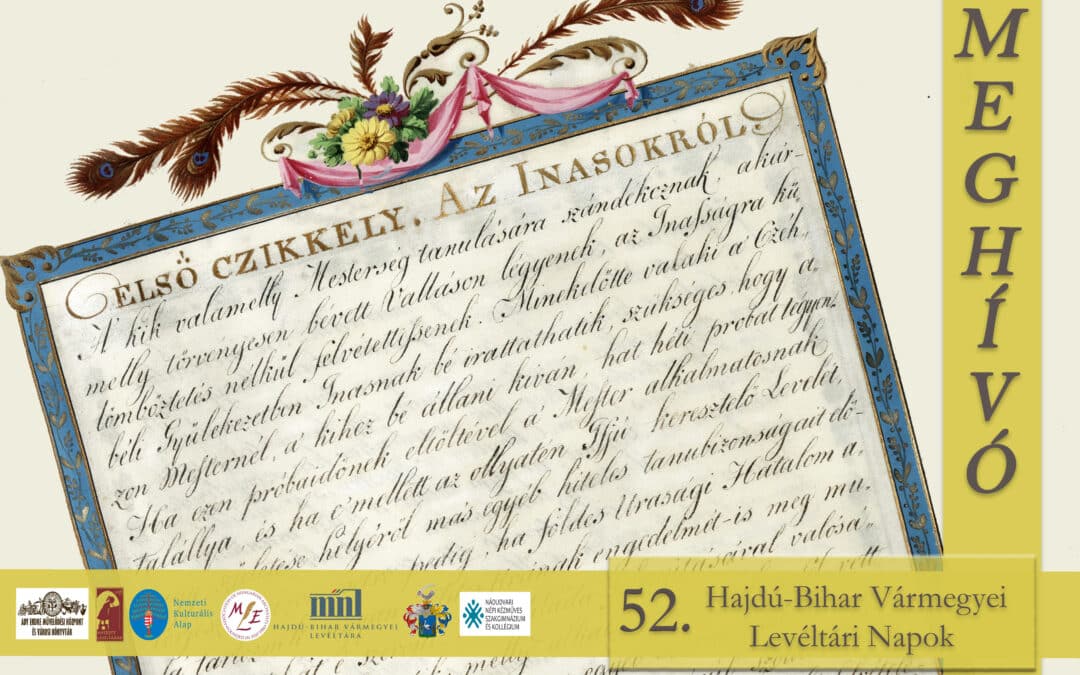 MEGHÍVÓ
ELSŐ CZIKKELY. AZ INASOKRÓL.
A' kik valamelly Mesterség tanulására szándékoznak, akár-
melly törvényesen bévett Valláson légyenek, az Inasságra kü
lömböztetés nélkül felvétettessenek. Minekelőtte valaki a' Czéh
béli Gyülekezetben Inasnak bé irattathatik, szükséges hogy a
zon Mesternél, a' kihez bé állani kiván, hat héti próbát tégyen.
Ha ezen próbaidőnek eltöltével a' Mester alkalmatosnak
talállya, és ha e' mellett az ollyatén Ifjú keresztelő Levelét,
helyéről más egyéb hiteles tanubizonságait elő-
pedig, ha földes Urasági Hatalom a
engedelmét-is meg mu
valósá
ADY ENDRE MŰVELŐDÉSI KÖZPONT
ÉS VÁROSI KÖNYVTÁR
Nemzeti
Kulturális
Alap
MLE
mnl
HAJDÚ-BIHAR VÁRMEGYEI
LEVÉLTÁRA
NÁDUDVARI
NÉPI KÉZMŰVES
SZAKGIMNÁZIUM
ÉS KOLLÉGIUM
52.
Hajdú-Bihar Vármegyei
Levéltári Napok